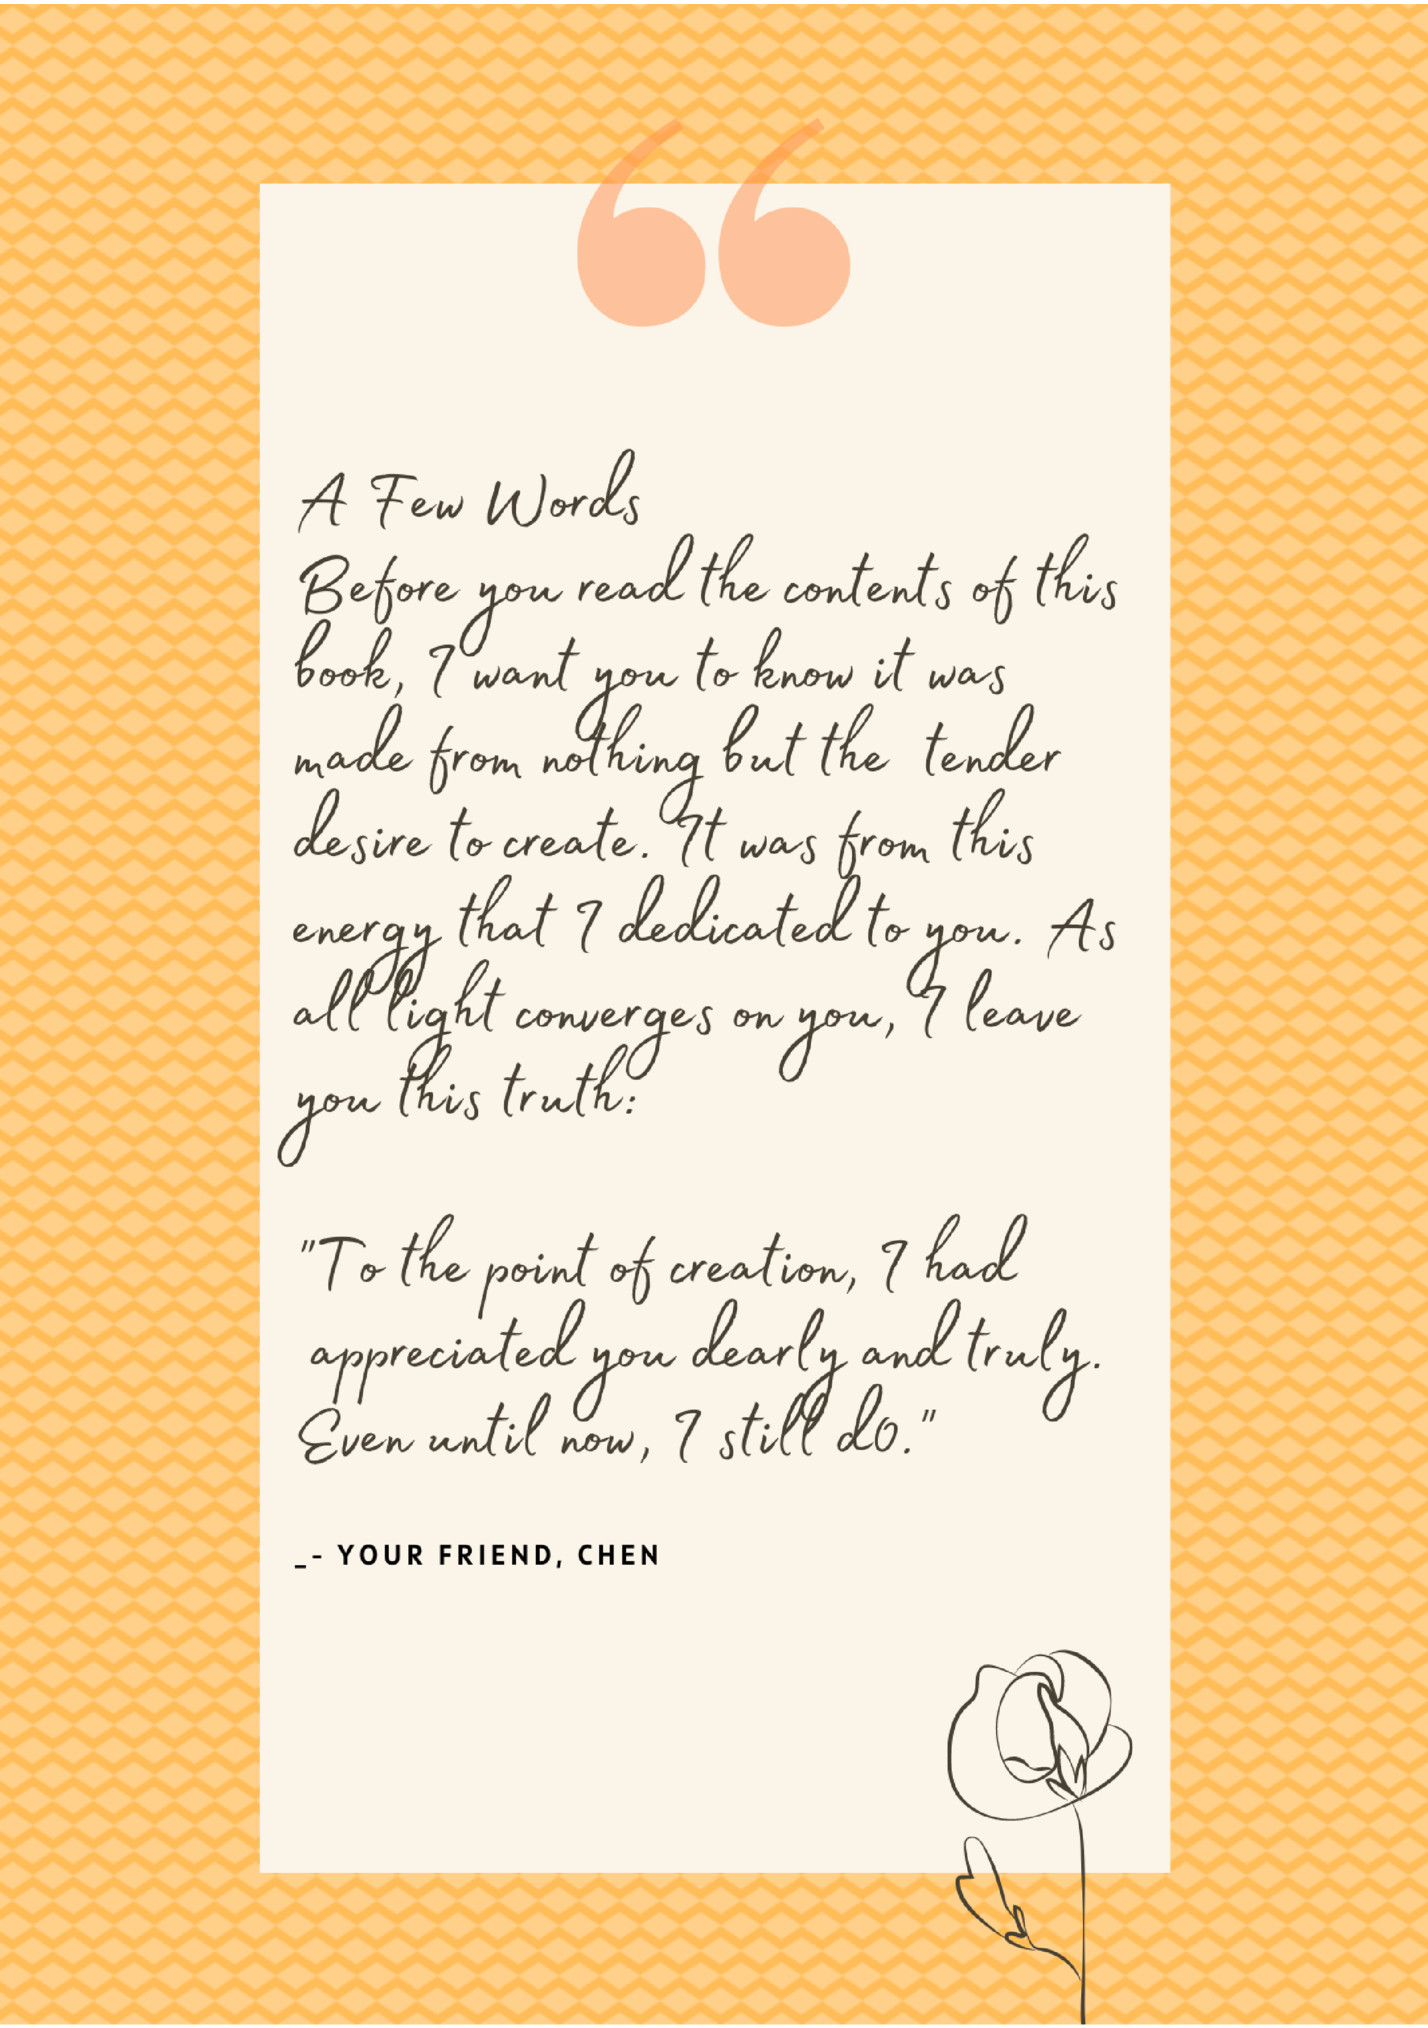 “
A Few Words
Before you read the contents of this
book, I want you to know it was
made from nothing but the tender
desire to create. It was from this
energy that I dedicated to you. As
all light converges on you, I leave
you this truth:
"To the point of creation, I had
appreciated you dearly and truly.
Even until now, I still do."
_- YOUR FRIEND, CHEN